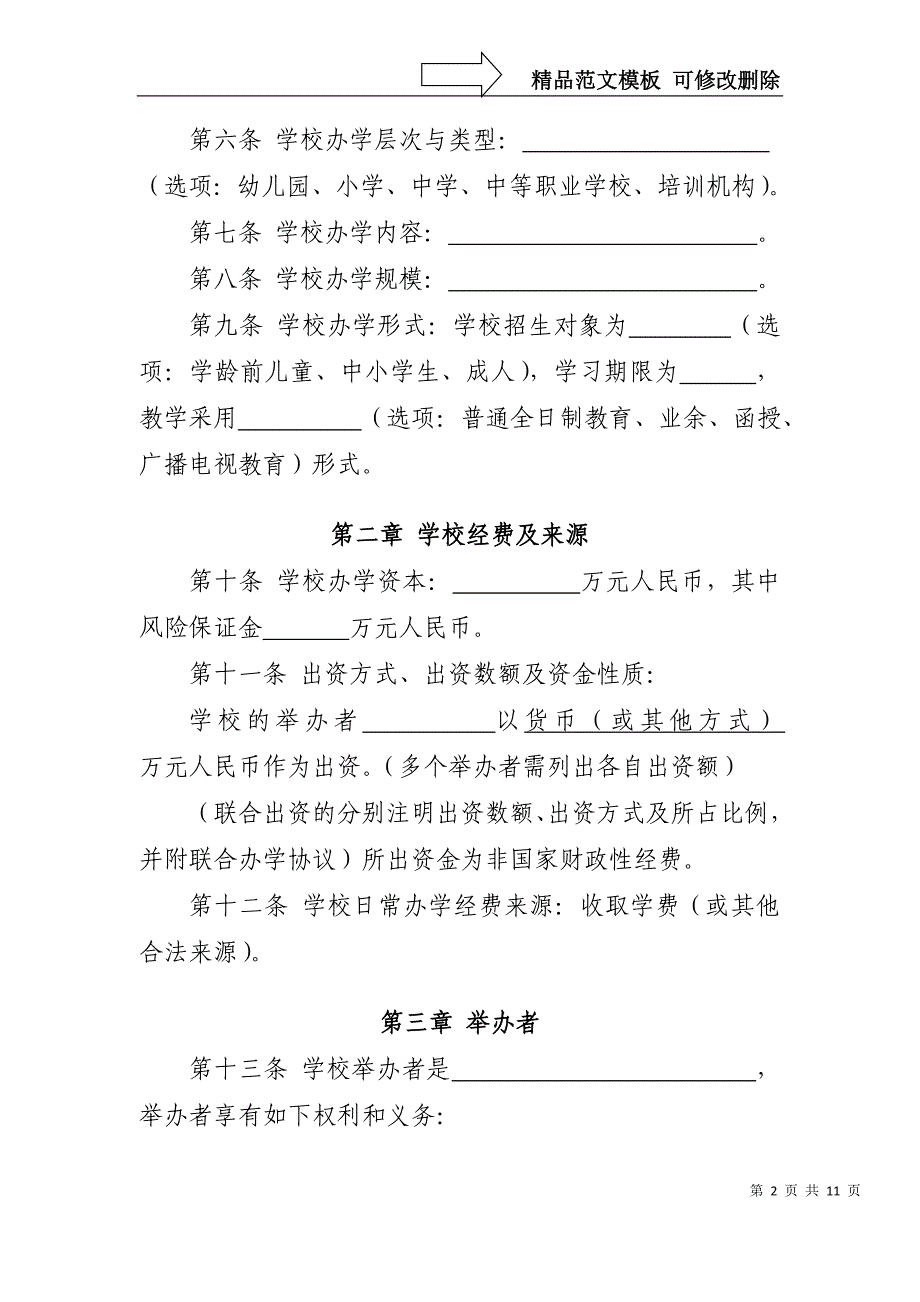 精品范文模板 可修改删除
第六条 学校办学层次与类型：____________________
（选项：幼儿园、小学、中学、中等职业学校、培训机构）。
第七条 学校办学内容：_________________________。
第八条 学校办学规模：_________________________。
第九条 学校办学形式：学校招生对象为________（选
项：学龄前儿童、中小学生、成人），学习期限为______，
教学采用__________（选项：普通全日制教育、业余、函授、
广播电视教育）形式。
第二章 学校经费及来源
第十条 学校办学资本：__________万元人民币，其中
风险保证金_______万元人民币。
第十一条 出资方式、出资数额及资金性质：
学校的举办者__________以货币（或其他方式）
万元人民币作为出资。（多个举办者需列出各自出资额）
（联合出资的分别注明出资数额、出资方式及所占比例，
并附联合办学协议）所出资金为非国家财政性经费。
第十二条 学校日常办学经费来源：收取学费（或其他
合法来源）。
第三章 举办者
第十三条 学校举办者是________________________，
举办者享有如下权利和义务：
第 2 页 共 11 页